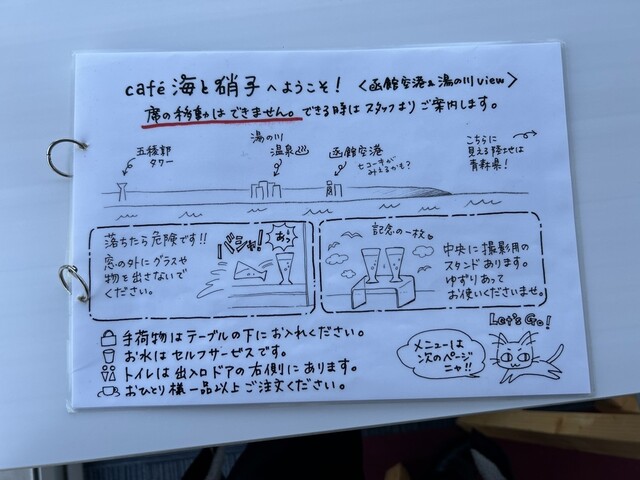 café 海と硝子 へようこそ！ 〈函館空港&湯の川view〉
席の移動はできません。できる時はスタッフよりご案内します。
五稜郭
タワー
湯の川
温泉♨
函館空港
ヒコーキが
みえるかも?
こちらに
見える陸地は
青森県！
落ちたら危険です!!
窓の外にグラスや
物を出さないで
ください。
バシャ!
あっ
記念の一枚。
中央に撮影用の
スタンドあります。
ゆずりあって
お使いくださいませ。
手荷物はテーブルの下にお入れください。
お水はセルフサービスです。
トイレは出入口ドアの右側にあります。
おひとり様一品以上ご注文ください。
メニューは
次のページ
ニャ!!
Let's Go!